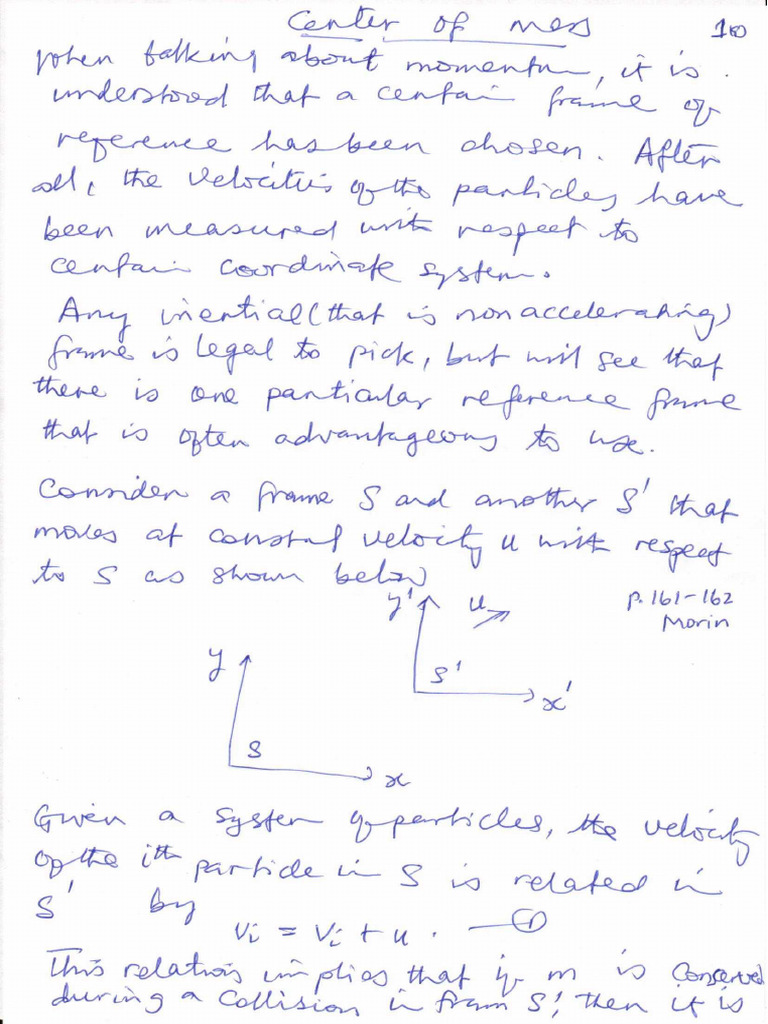 Center of mass
10
When talking about momentum, it is
understood that a certain frame of
reference has been chosen. After
all, the velocities of the particles have
been measured with respect to
certain coordinate system.
Any inertial (that is nonaccelerating)
frame is legal to pick, but will see that
there is one particular reference frame
that is often advantageous to use.
Consider a frame S and another S' that
moves at constant velocity u with respect
to S as shown below
p. 161-162
Morin
y' u
S'
x'
y
S
x
Given a system of particles, the velocity
of the ith particle in S is related in
S' by
vi = vi + u. — 1
This relation implies that if m is conserved
during a collision in fram S', then it is